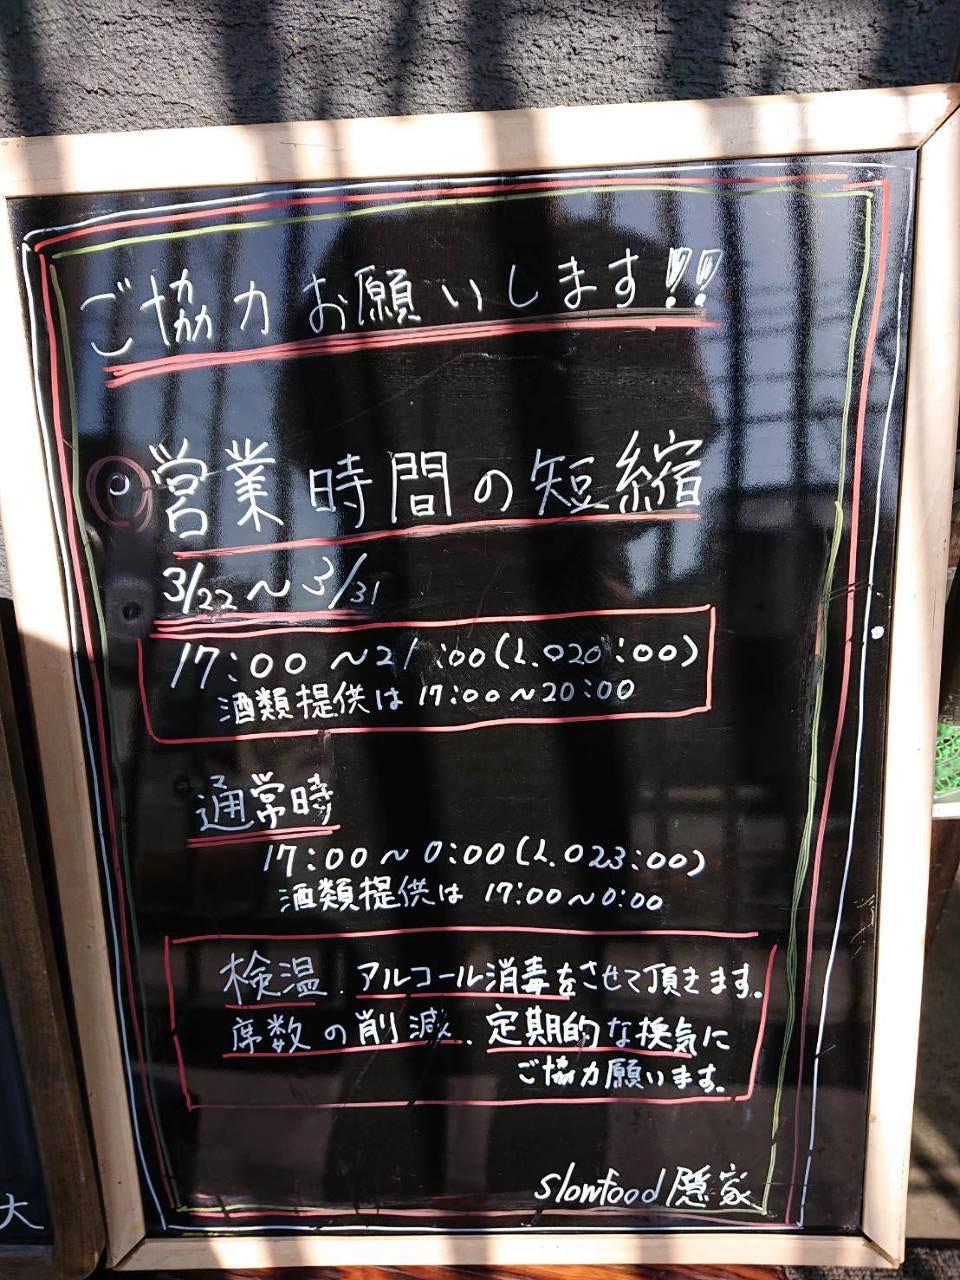 ご協力お願いします!!
営業時間の短縮
3/22～3/31
17:00～21:00(L.O20:00)
酒類提供は 17:00～20:00
通常時
17:00～0:00(L.O23:00)
酒類提供は 17:00～0:00
検温、アルコール消毒をさせて頂きます。
席数の削減、定期的な換気に
ご協力願います。
slowfood 隠家
大